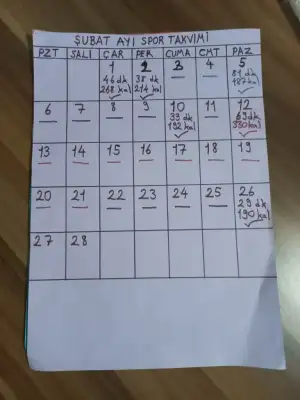 ŞUBAT AYI SPOR TAKVİMİ
PZT SALI ÇAR PER CUMA CMT PAZ
1 2 3 4 5
46 dk 38 dk 81 dk
268 kal 214 kal 487 kal
6 7 8 9 10 11 12
33 dk 69 dk
192 kal 380 kal
13 14 15 16 17 18 19
20 21 22 23 24 25 26
29 dk
190 kal
27 28